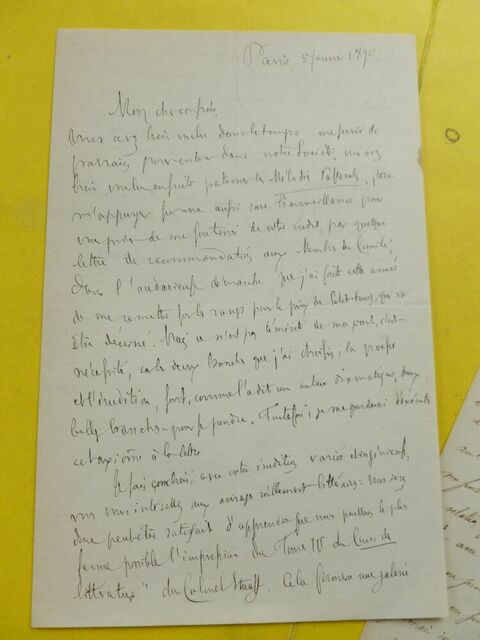 Paris, 5 janvier 1870
Mon cher confrère,
Vous avez bien voulu dans le temps me servir de
parrain pour entrer dans notre Société; vous avez
bien voulu ensuite patronner les Mélodies Pastorales, j'ose
m'appuyer sur une aussi rare bienveillance pour
vous prier de me soutenir de votre crédit par quelque
lettre de recommandation aux Membres du Comité,
dans l'audacieuse démarche que j'ai faite cette année
de me remettre sur les rangs pour le prix de qui va
être décerné. Mais ce n'est pas témérité de ma part, c'est
nécessité, car les deux branches que j'ai choisies, la poésie
et l'érudition, sont, comme l'a dit un auteur dramatique, deux
belles branches pour se pendre. Toutefois, je me garderai d'exécuter
cet axiôme à la lettre.
Je sais combien, avec votre érudition variée et ingénieuse,
vous vous intéressez aux ouvrages réellement littéraires: vous serez
donc peut-être satisfait d'apprendre que nous poussons le plus
ferme possible l'impression du Tome IV du Cours de
littérature" du Colonel Staaff. Cela formera une galerie